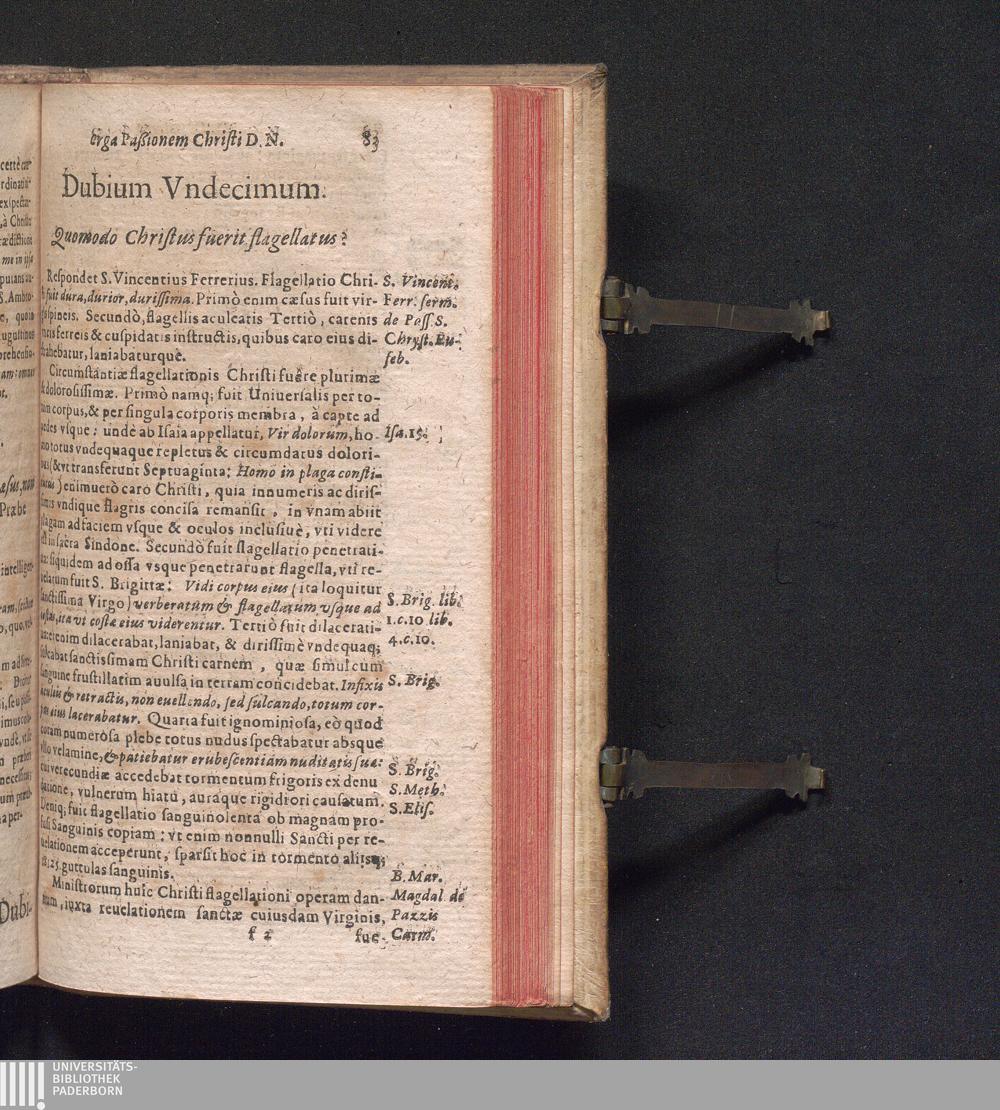 erga Paſsionem Chriſti D. N. 83
Dubium Vndecimum.
Quomodo Chriſtus fuerit flagellatus?
Reſpondet S. Vincentius Ferrerius. Flagellatio Chri-
fuit dura, durior, duriſſima. Primò enim cæſus fuit vir-
ſpineis. Secundò, flagellis aculeatis Tertiò, catenis
ferreis & cuſpidatis inſtructis, quibus caro eius di-
trahebatur, laniabaturquè.
Circumſtantiæ flagellationis Chriſti fuêre plurimæ
& doloroſiſſimæ. Primò namq; fuit Univerſalis per to-
tum corpus, & per ſingula corporis membra, à capte ad
pedes vſque: undè ab Iſaia appellatur, Vir dolorum, ho-
mo totus vndequaque repletus & circumdatus dolori-
bus (& vt transferunt Septuaginta: Homo in plaga conſti-
tutus) enimuerò caro Chriſti, quia innumeris ac diriſ-
ſimis vndique flagris conciſa remanſit, in vnam abiit
plagam ad faciem vſque & oculos incluſiuè, vti videre
eſt in ſacra Sindone. Secundò fuit flagellatio penetrati-
ua: ſiquidem ad oſſa vsque penetrarunt flagella, vti re-
uelatum fuit S. Brigittæ: Vidi corpus eius (ita loquitur
ſanctiſſima Virgo) verberatum & flagellatum vſque ad
coſtas, ita vt coſtæ eius viderentur. Tertiò fuit dilacerati-
enim dilacerabat, laniabat, & diriſſimè vndequaq;
ſulcabat ſanctissimam Chriſti carnem, quæ ſimul cum
ſanguine fruſtillatim auulſa in terram concidebat. Infixis
aculeis & retractis, non euellendo, ſed ſulcando, totum cor-
pus eius lacerabatur. Quarta fuit ignominioſa, eò quod
coram numeroſa plebe totus nudus ſpectabatur absque
vllo velamine, & patiebatur erubeſcentiam nuditatis ſuæ:
cui verecundiæ accedebat tormentum frigoris ex denu
datione, vulnerum hiatu, auraque rigidiori cauſatum.
Deniq; fuit flagellatio ſanguinolenta ob magnam pro-
fuſi Sanguinis copiam: vt enim nonnulli Sancti per re-
uelationem acceperunt, ſparſit hoc in tormento
guttulas ſanguinis.
Miniſtrorum huic Chriſti flagellationi operam dan-
tium, iuxta reuelationem ſanctæ cuiusdam Virginis,
f 2 fue-
S. Vincent.
Ferr. ſerm.
de Paſſ. S.
Chryſt. Eu-
ſeb.
Iſa. 15.
S. Brig. lib.
1. c. 10 lib.
4. c. 10.
S. Brig.
S. Brig.
S. Meth.
S. Eliſ.
B. Mar.
Magdal de
Pazzis
Carm.
Dubi-
UNIVERSITÄTS-
BIBLIOTHEK
PADERBORN